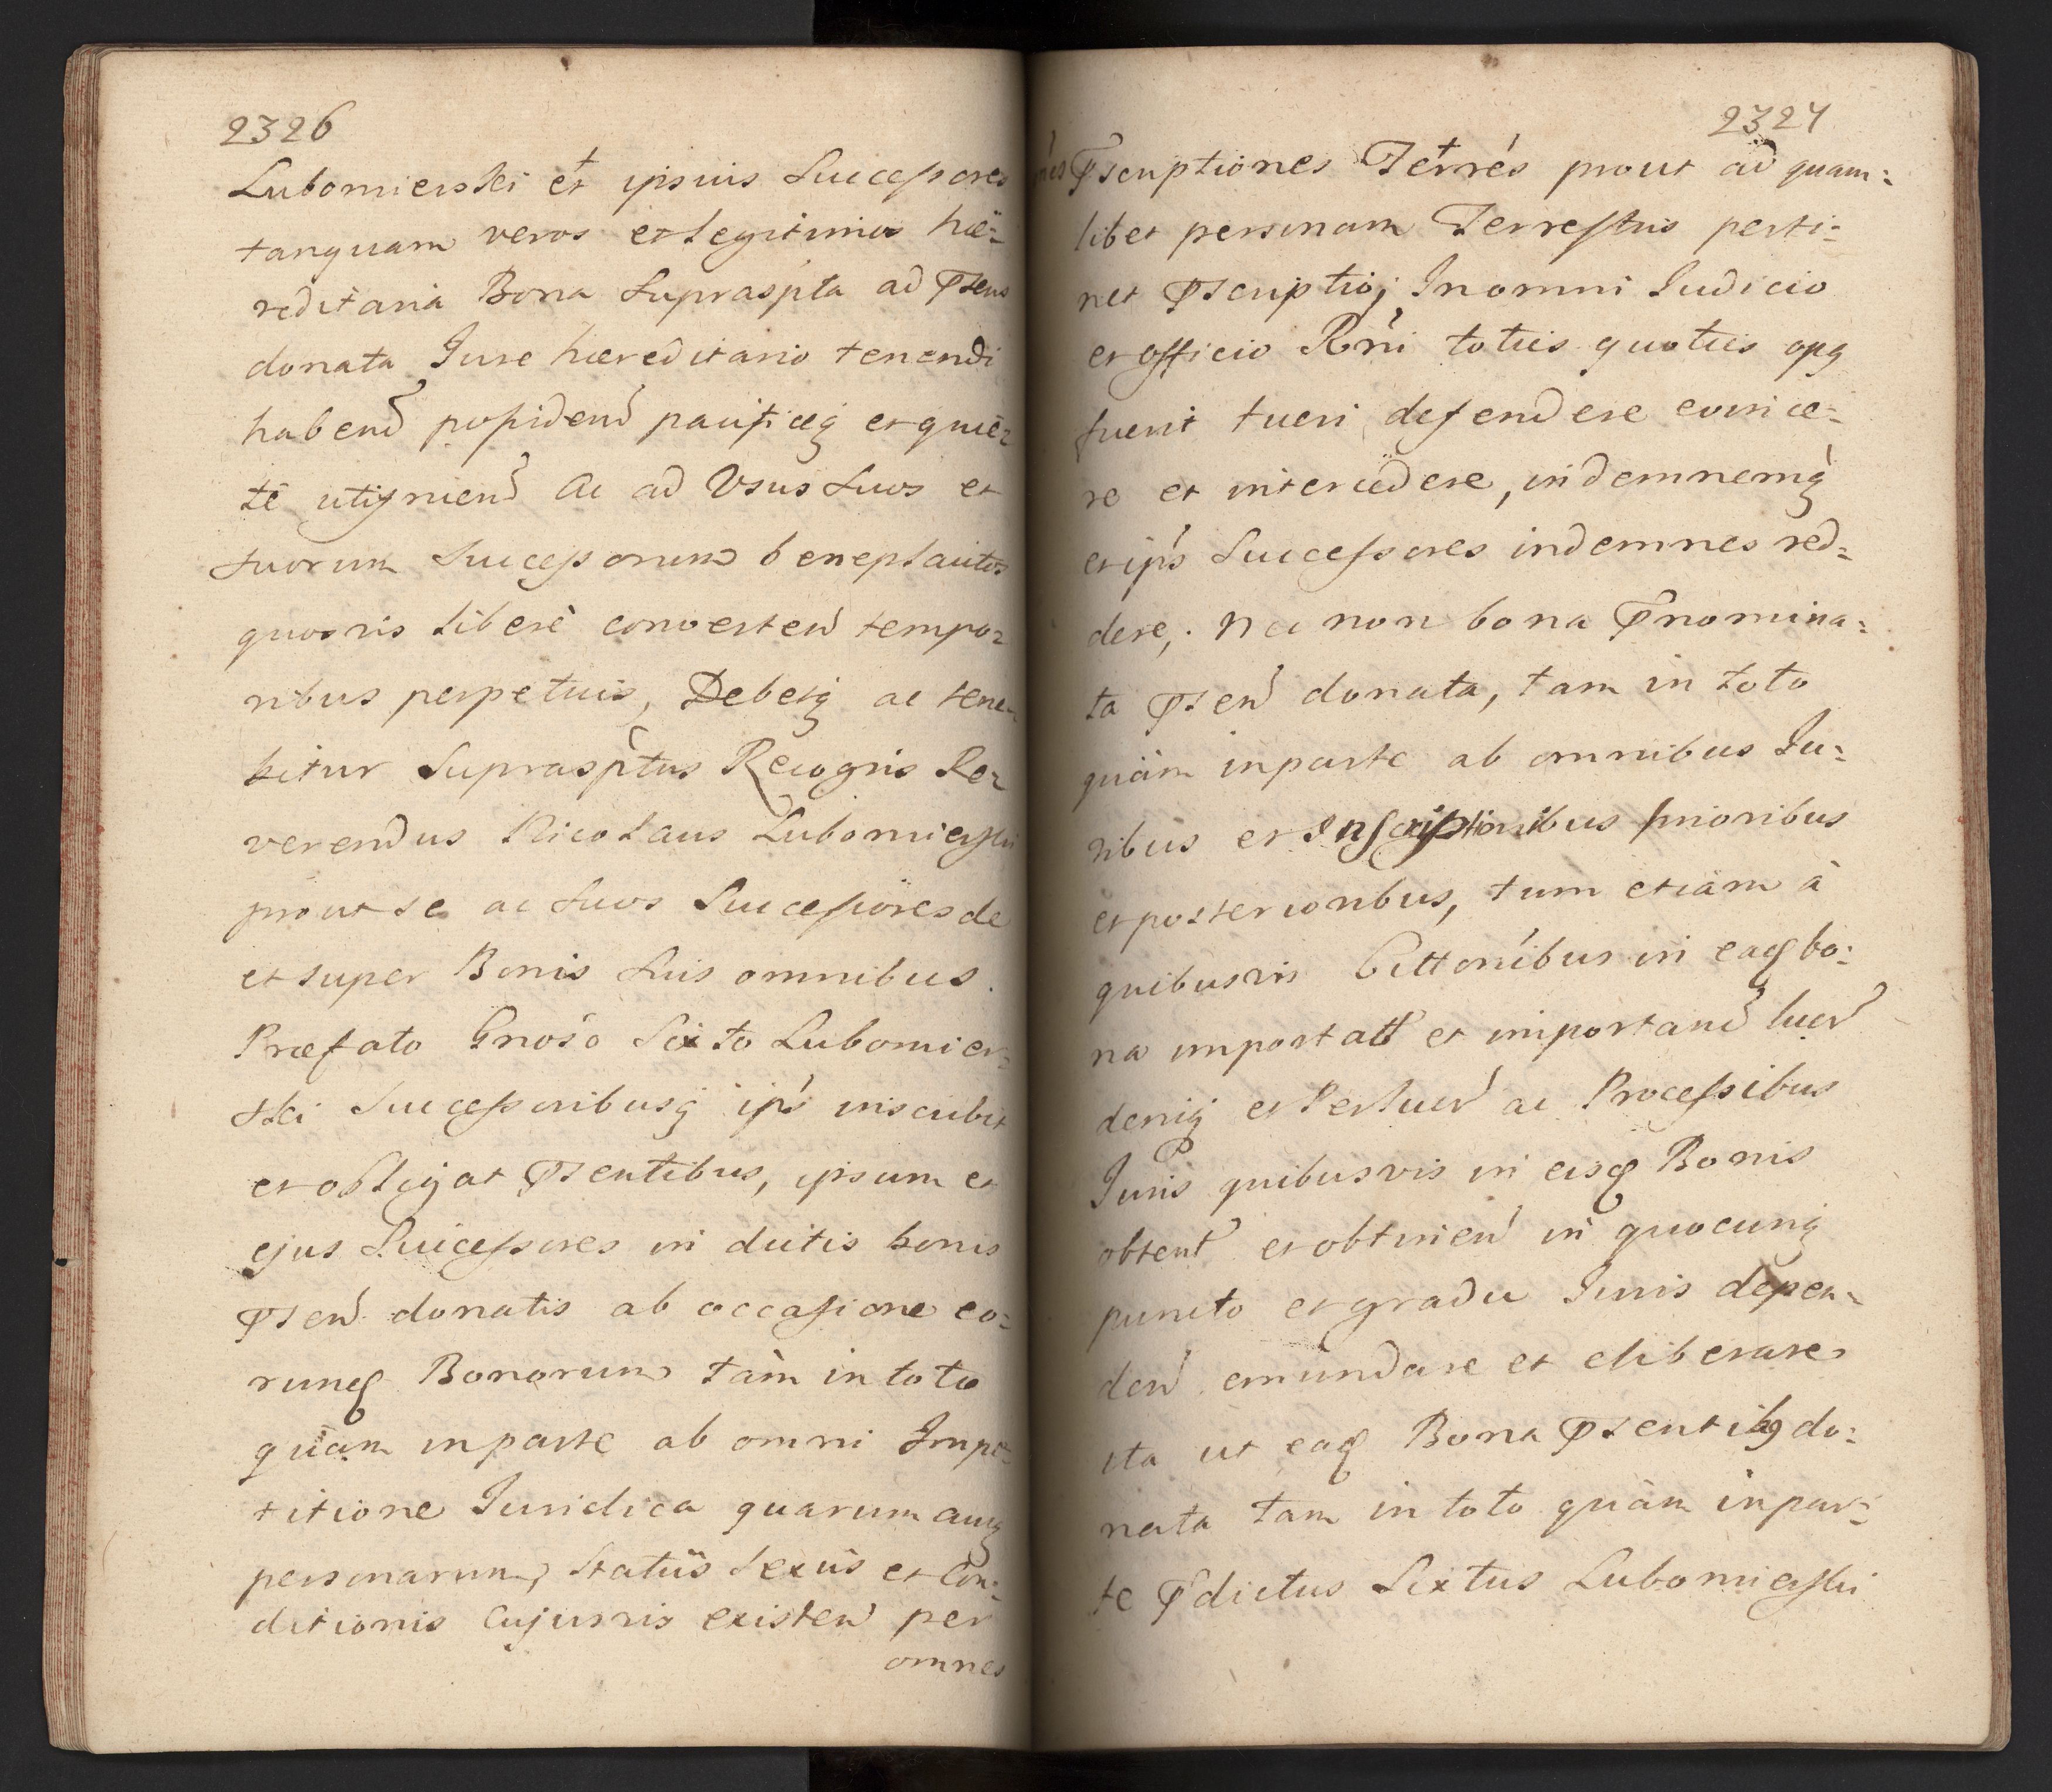 2326
Lubomierski et ipsius Successores
tanquam veros et legitimos hæ=
reditaria Bona Supraspta ad Psens
donata Jure hæreditario tenendi
habend possidend pacificeq et quie=
te utifruend ac ad Usus Suos et
suorum Successorum beneplacitos
quosvis liberè convertend tempo=
ribus perpetuis, Debetq ac tene=
bitur Suprasptus Recognis Re=
verendus Nicolaus Lubomierski
prout se ac Suos Successores de
et super Bonis Suis omnibus.
Præfato Gnoso Sixto Lubomier=
ski Successoribusq ips inscribit
et obligat Psentibus, ipsum et
ejus Successores in dictis bonis
Psend donatis ab occasione eo=
rundq Bonorum tàm in toto
quàm in parte ab omni Impe=
titione Juridica quarumcunq
personarum, Statùs Sexùs et Con=
ditionis cujusvis existend per
omnes
2327
Pscriptiones Terres prout ad quam=
libet personam Terrestris perti=
net Pscriptioj In omni Judicio
et officio Rni toties quoties opq
fuerit tueri defendere evince=
re et intercedere, indemnemq
et ips Successores indemnes red=
dere, Nec non bona Pnomina=
ta Psend donata, tam in toto
quàm in parte ab omnibus Ju=
ribus et Inscriptionibus prioribus
et posterioribus, tum etiam à
quibusvis Cittonibus in eaq bo=
na importatt et importand lucr
deniq et Perlucr ac Processibus
Juris quibusvis in eisq Bonis
obtent et obtinend in quocunq
puncto et gradu Juris depen=
dend emundare et eliberare
ita ut eaq Bona Psentibq do=
nata tam in toto quàm in par=
te Pdictus Sixtus Lubomierski